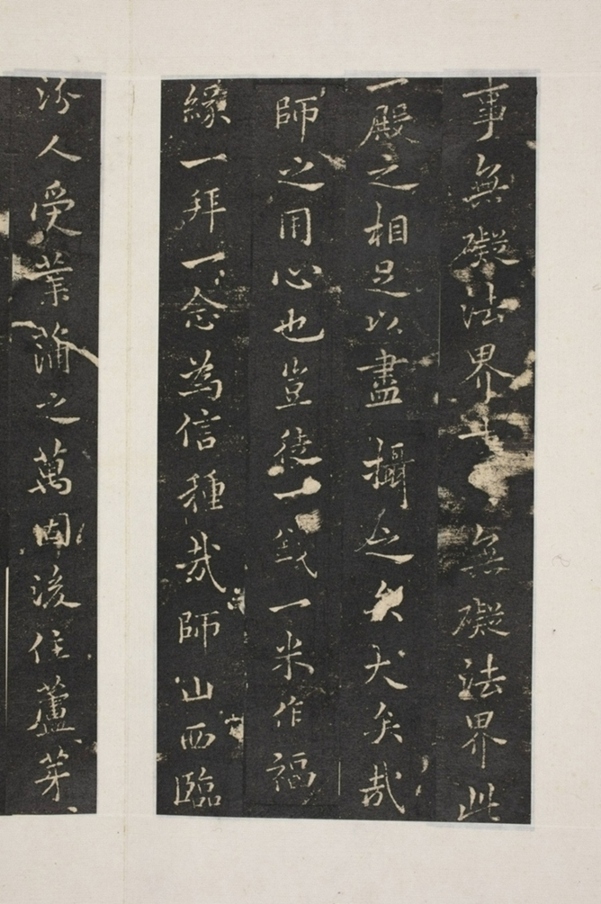 事無礙法界無礙法界此
一殿之相足以盡攝之矣大矣哉
師之用心也豈徒一錢一米作福
緣一拜一念為信種哉師山西臨
汾人受業蒲之萬固後住蘆芽